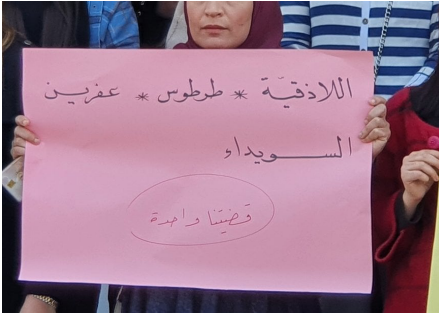 اللاذقيّة * طرطوس * عفرين
الســـويداء
قضيتنا واحدة